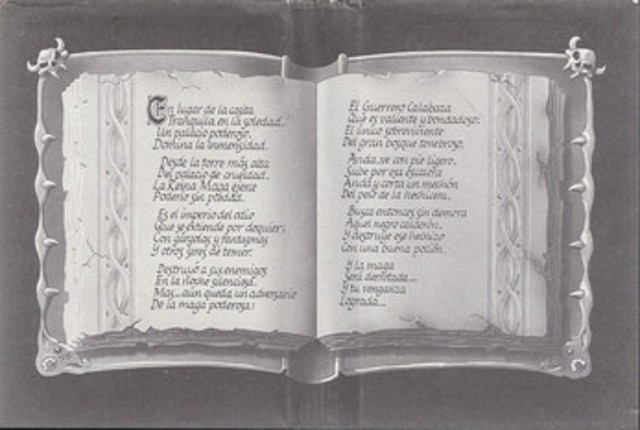 En lugar de la casita
Tranquila en la soledad,
Un palacio poderoso,
Domina la inmensidad.
Desde la torre más alta
Del palacio de crueldad,
La Reina Maga ejerce
Poderío sin piedad.
Es el imperio del odio
Que se extiende por doquier;
Con gárgolas y fantasmas
Y otros seres de temer.
Destruyó a sus enemigos
En la noche silenciosa.
Mas...aún queda un adversario
De la maga poderosa:
El Guerrero Calabaza
Que es valiente y bondadoso;
El único sobreviviente
Del gran bosque tenebroso.
Anda, ve con pie ligero,
Sube por esa escalera
Anda y corta un mechón
Del pelo de la hechicera.
Busca entonces sin demora
Aquel negro calderón,
Y destruye ese hechizo
Con una buena poción.
Y la maga
Será derrotada...
Y tu venganza
Lograda...